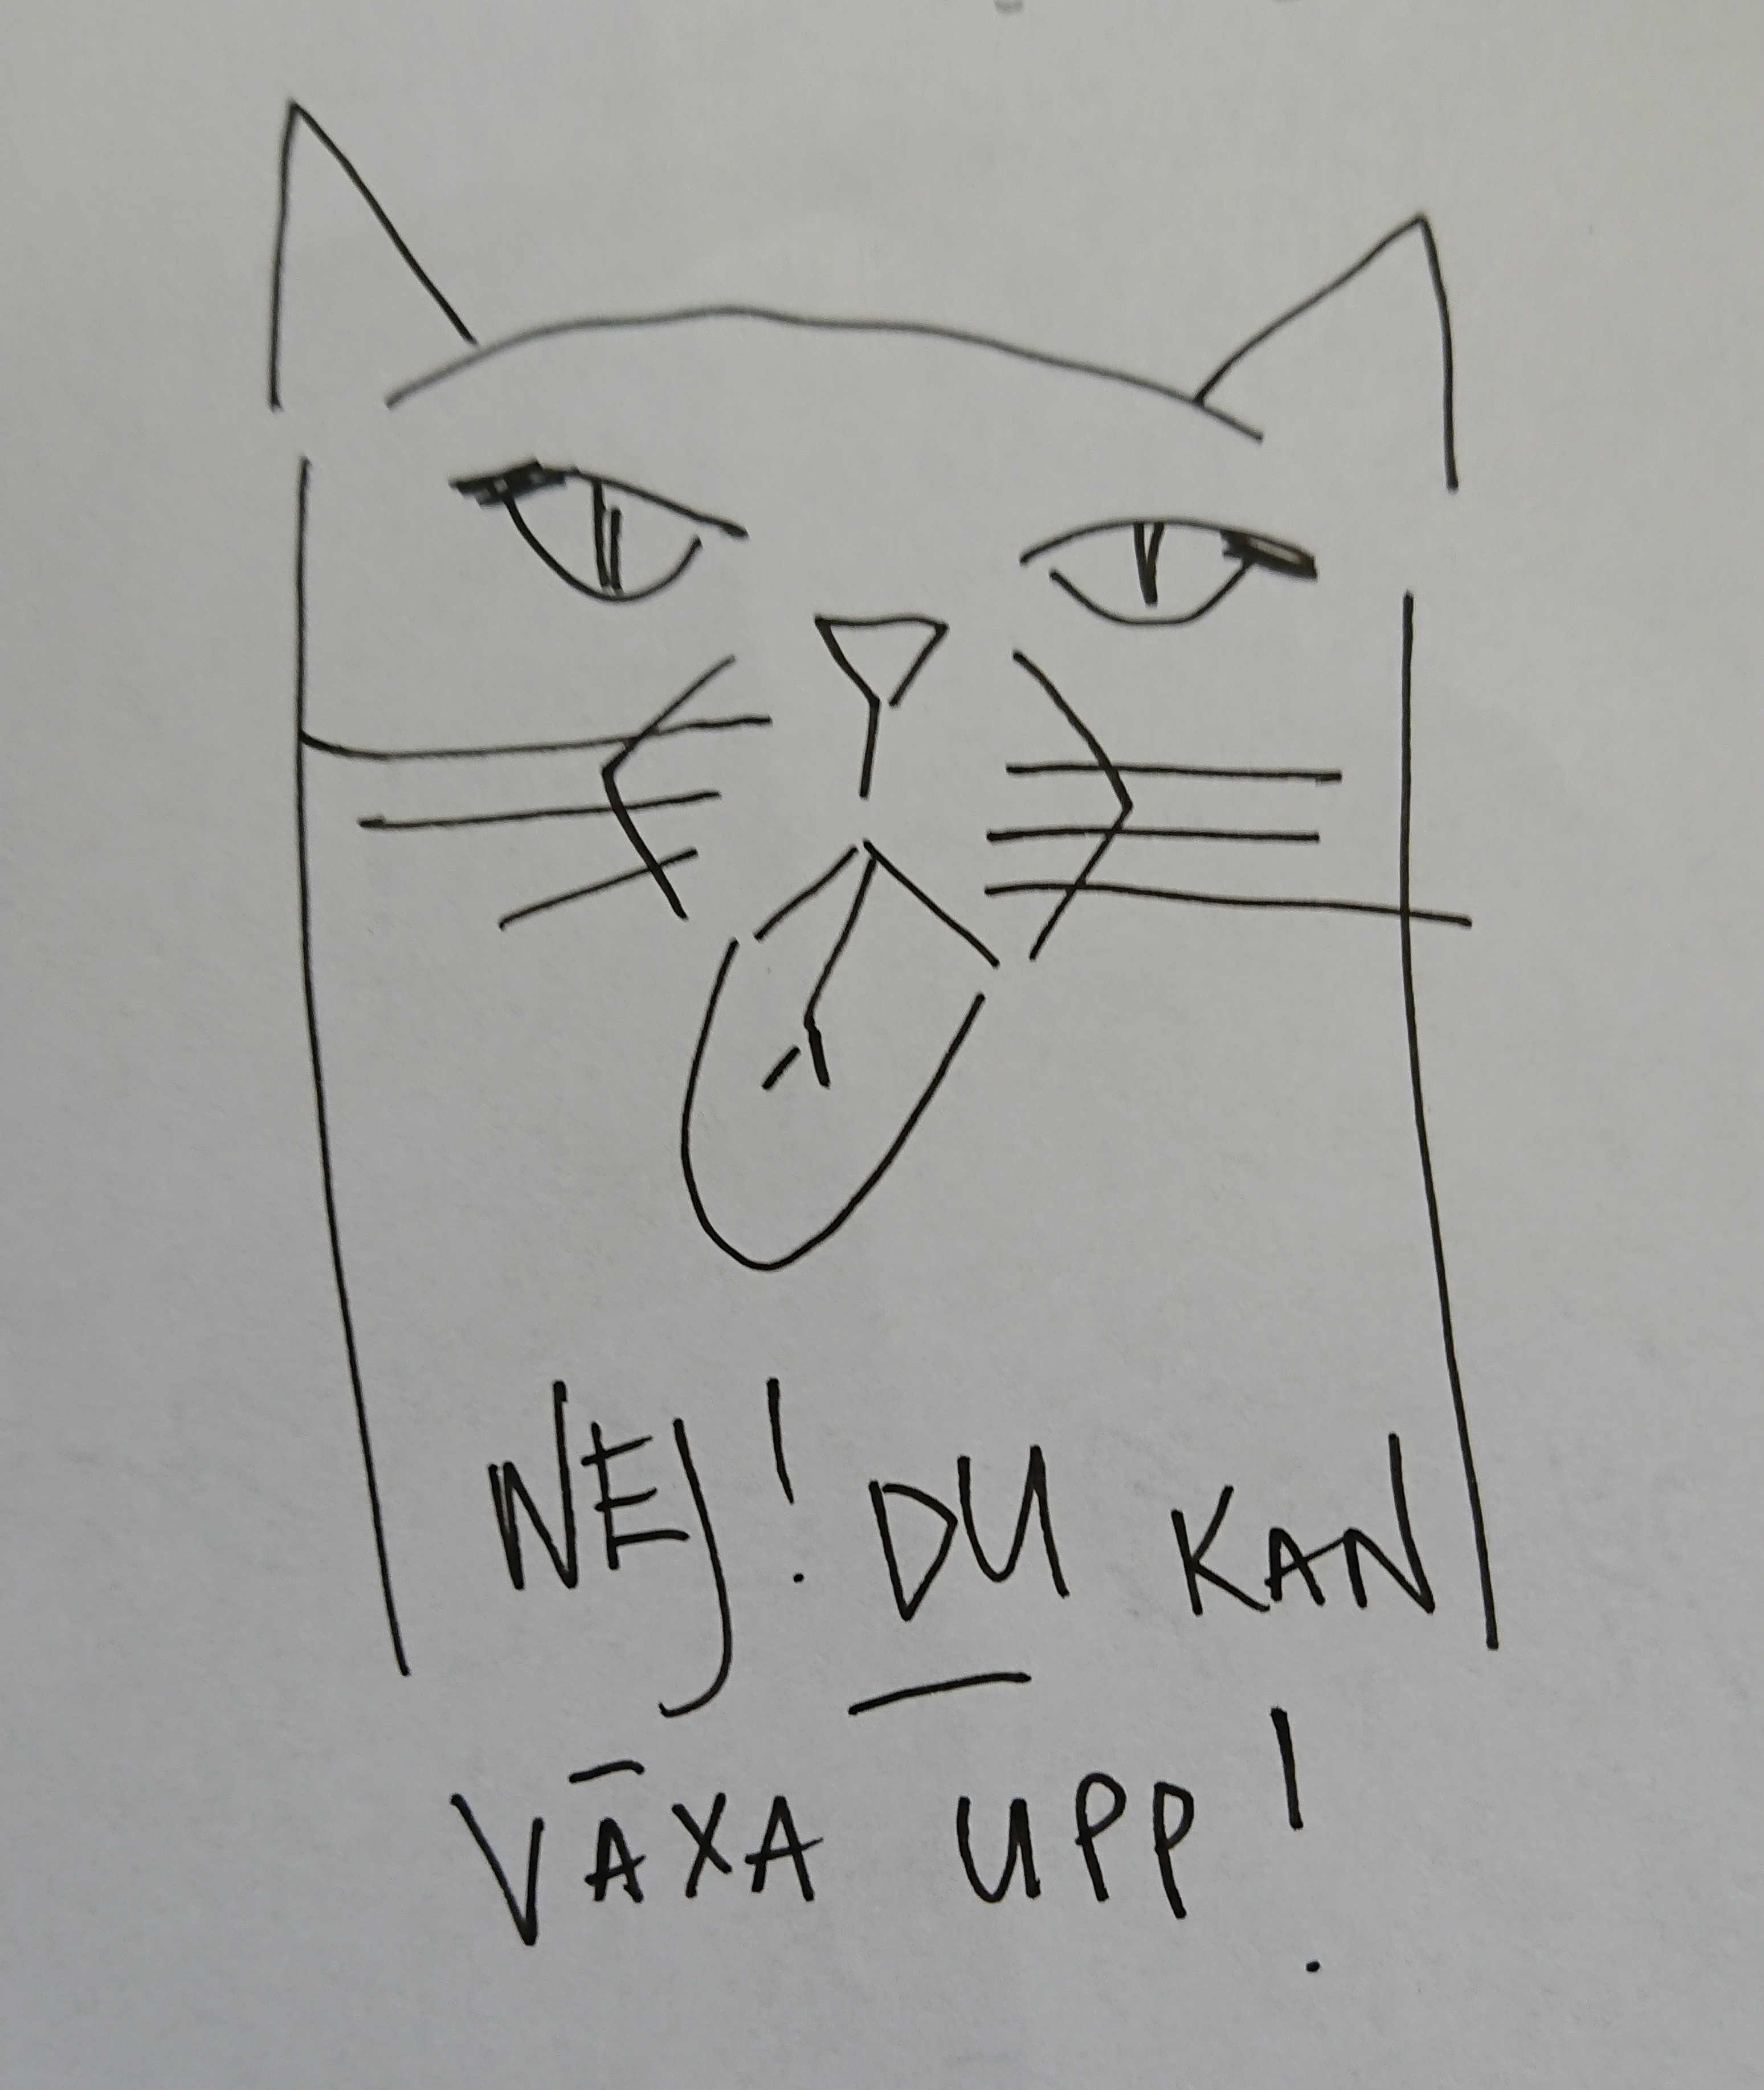 NEJ! DU KAN
VÄXA UPP!